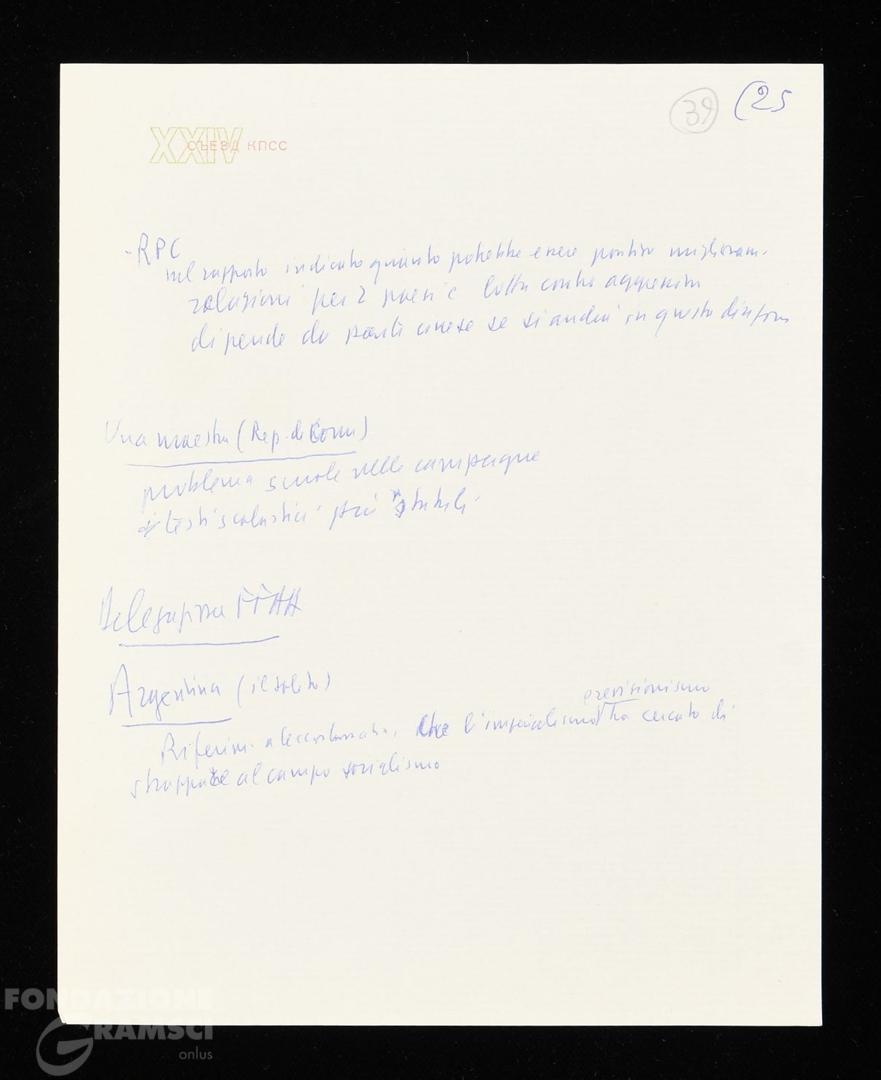 39 (25
XXIV СЪЕЗД КПСС
- RPC
nel rapporto indicato quanto potrebbe essere positivo miglioram.
relazioni per 2 paesi e lotta contro aggressioni
dipende da parte cinese se si andrà in questa direzione
Una maestra (Rep. dei Komi)
problema scuole nelle campagne
testi scolastici più stabili
Delegazione FFAA
Argentina (il solito)
Riferim. Cecoslovacchia, che l'imperialismo e revisionismo ha cercato di
strappare al campo socialismo
FONDAZIONE
GRAMSCI
onlus